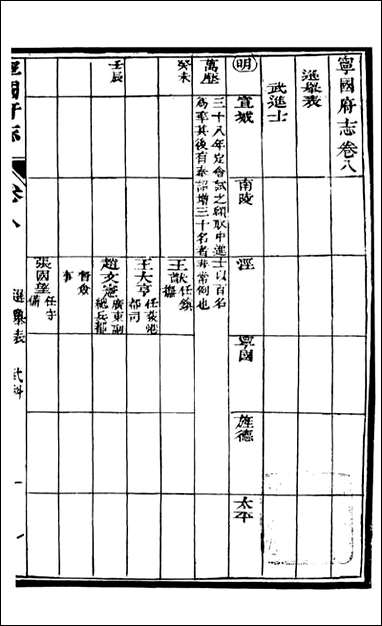 寧國府志卷八
選舉表
武進士
明 宣城 南陵 涇 寧國 旌德 太平
萬歷
三十八年定會試之額取中進士以百名
為率其後有奉詔增三十名者非常例也
癸未
王猷任鎮
撫
王大亨任
都司
壬辰
趙文憲廣東副
總兵都
督僉
事
張國望任守
備
寧國府志
卷八 選舉表 武科 一